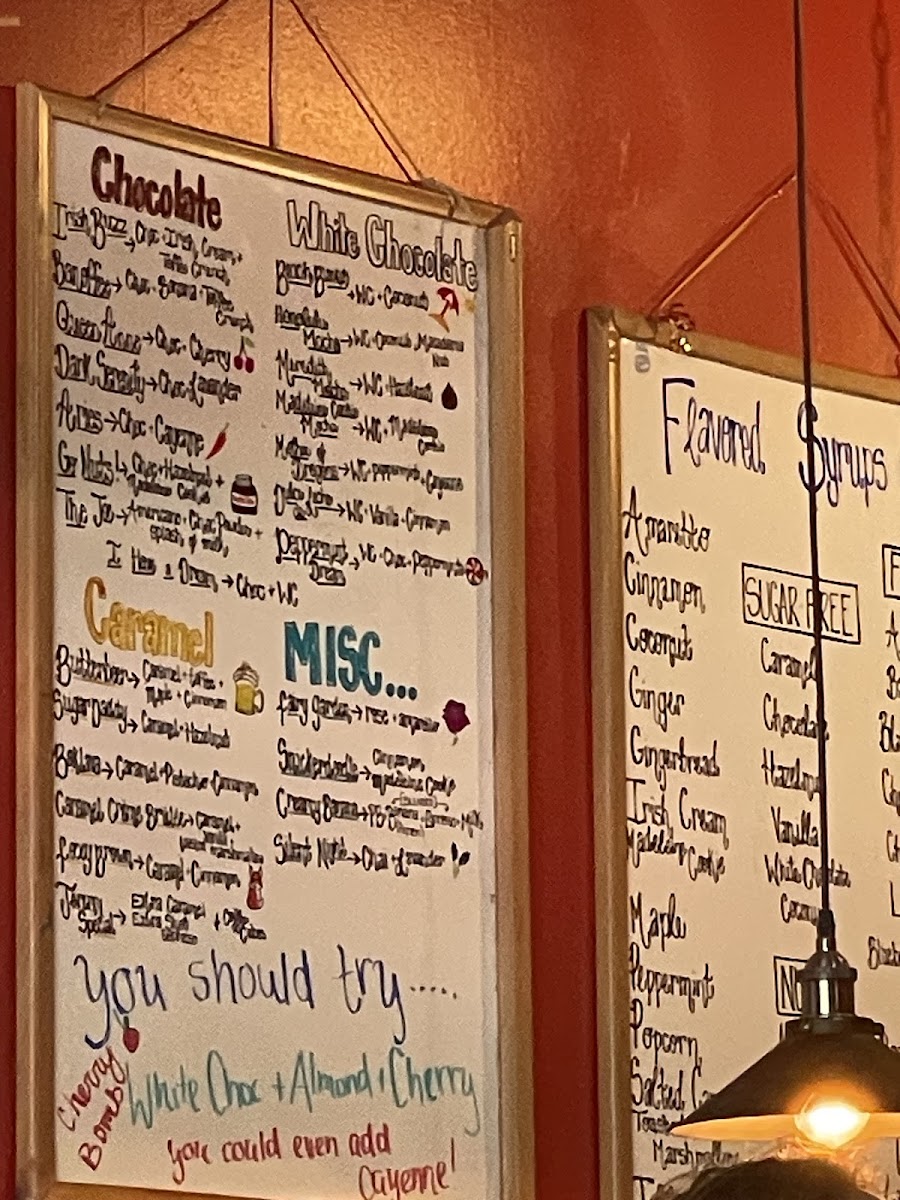 Chocolate
Irish Buzz → Choc + Irish Cream +
Toffee Crunch
Banoffee → Choc + Banana + Toffee
Crunch
Queen Anne → Choc + Cherry
Dark Serenity → Choc + Lavender
Aries → Choc + Cayenne
Go Nuts! → Choc + Hazelnut +
Madeleine Cookie
The Joe → Americano + Choc Powder +
splash of milk
I Have a Dream → Choc + WC
White Chocolate
Beach Bunny → WC + Coconut
Honolulu
Mocha → WC + Coconut, Macadamia
Nut
Meredith
Mocha → WC + Hazelnut
Madeleine Cookie
Mocha → WC + Madeleine
Cookie
Mother of
Dragons → WC + Peppermint + Cayenne
Dulce Leche → WC + Vanilla + Cinnamon
Peppermint
Dream → WC + Choc + Peppermint
Caramel
Butterbeer → Caramel + Toffee +
Maple + Cinnamon
Sugar Daddy → Caramel + Hazelnut
Baklava → Caramel + Pistachio + Cinnamon
Caramel Crème Brûlée → Caramel +
Vanilla
toasted marshmallow
foxy brown → Caramel + Cinnamon
Special → Extra Caramel
Extra Shot
Espresso + Coffee
Cubes
MISC...
fairy garden → rose +
Snickerdoodle → Cinnamon,
madeleine Cookie
→ PB + Banana + Espresso + Milk
Silent Night → Chai + Lavender
You should try.....
Cherry
Bomb
White Choc + Almond + Cherry
you could even add
Cayenne!
Flavored Syrups
Amaretto
Cinnamon
Coconut
Ginger
Gingerbread
Irish Cream
Madeleine
Cookie
Maple
Peppermint
Popcorn
Salted
Marshmallow
SUGAR FREE
Caramel
Chocolate
Hazelnut
Vanilla
White Chocolate